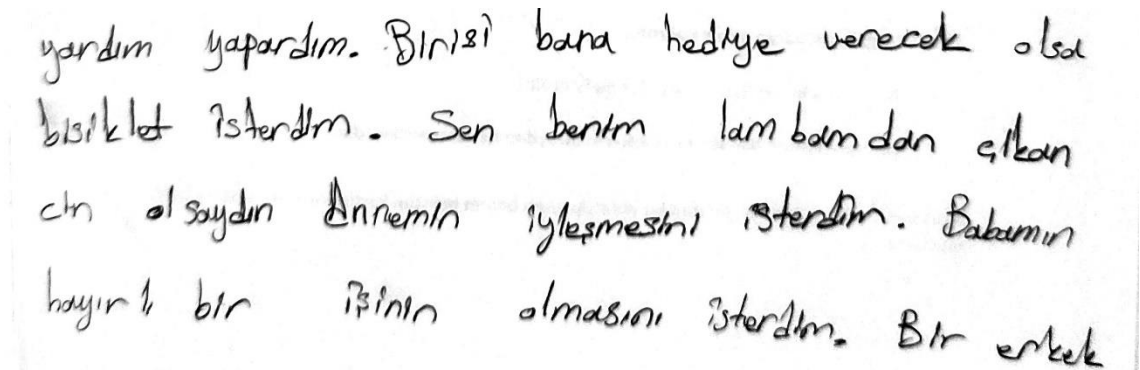 yardım yapardım. Birisi bana hediye verecek olsa
bisiklet isterdim. Sen benim lambamdan çıkan
cin olsaydın Annemin iyleşmesini isterdim. Babamın
hayırlı bir işinin olmasını isterdim. Bir erkek